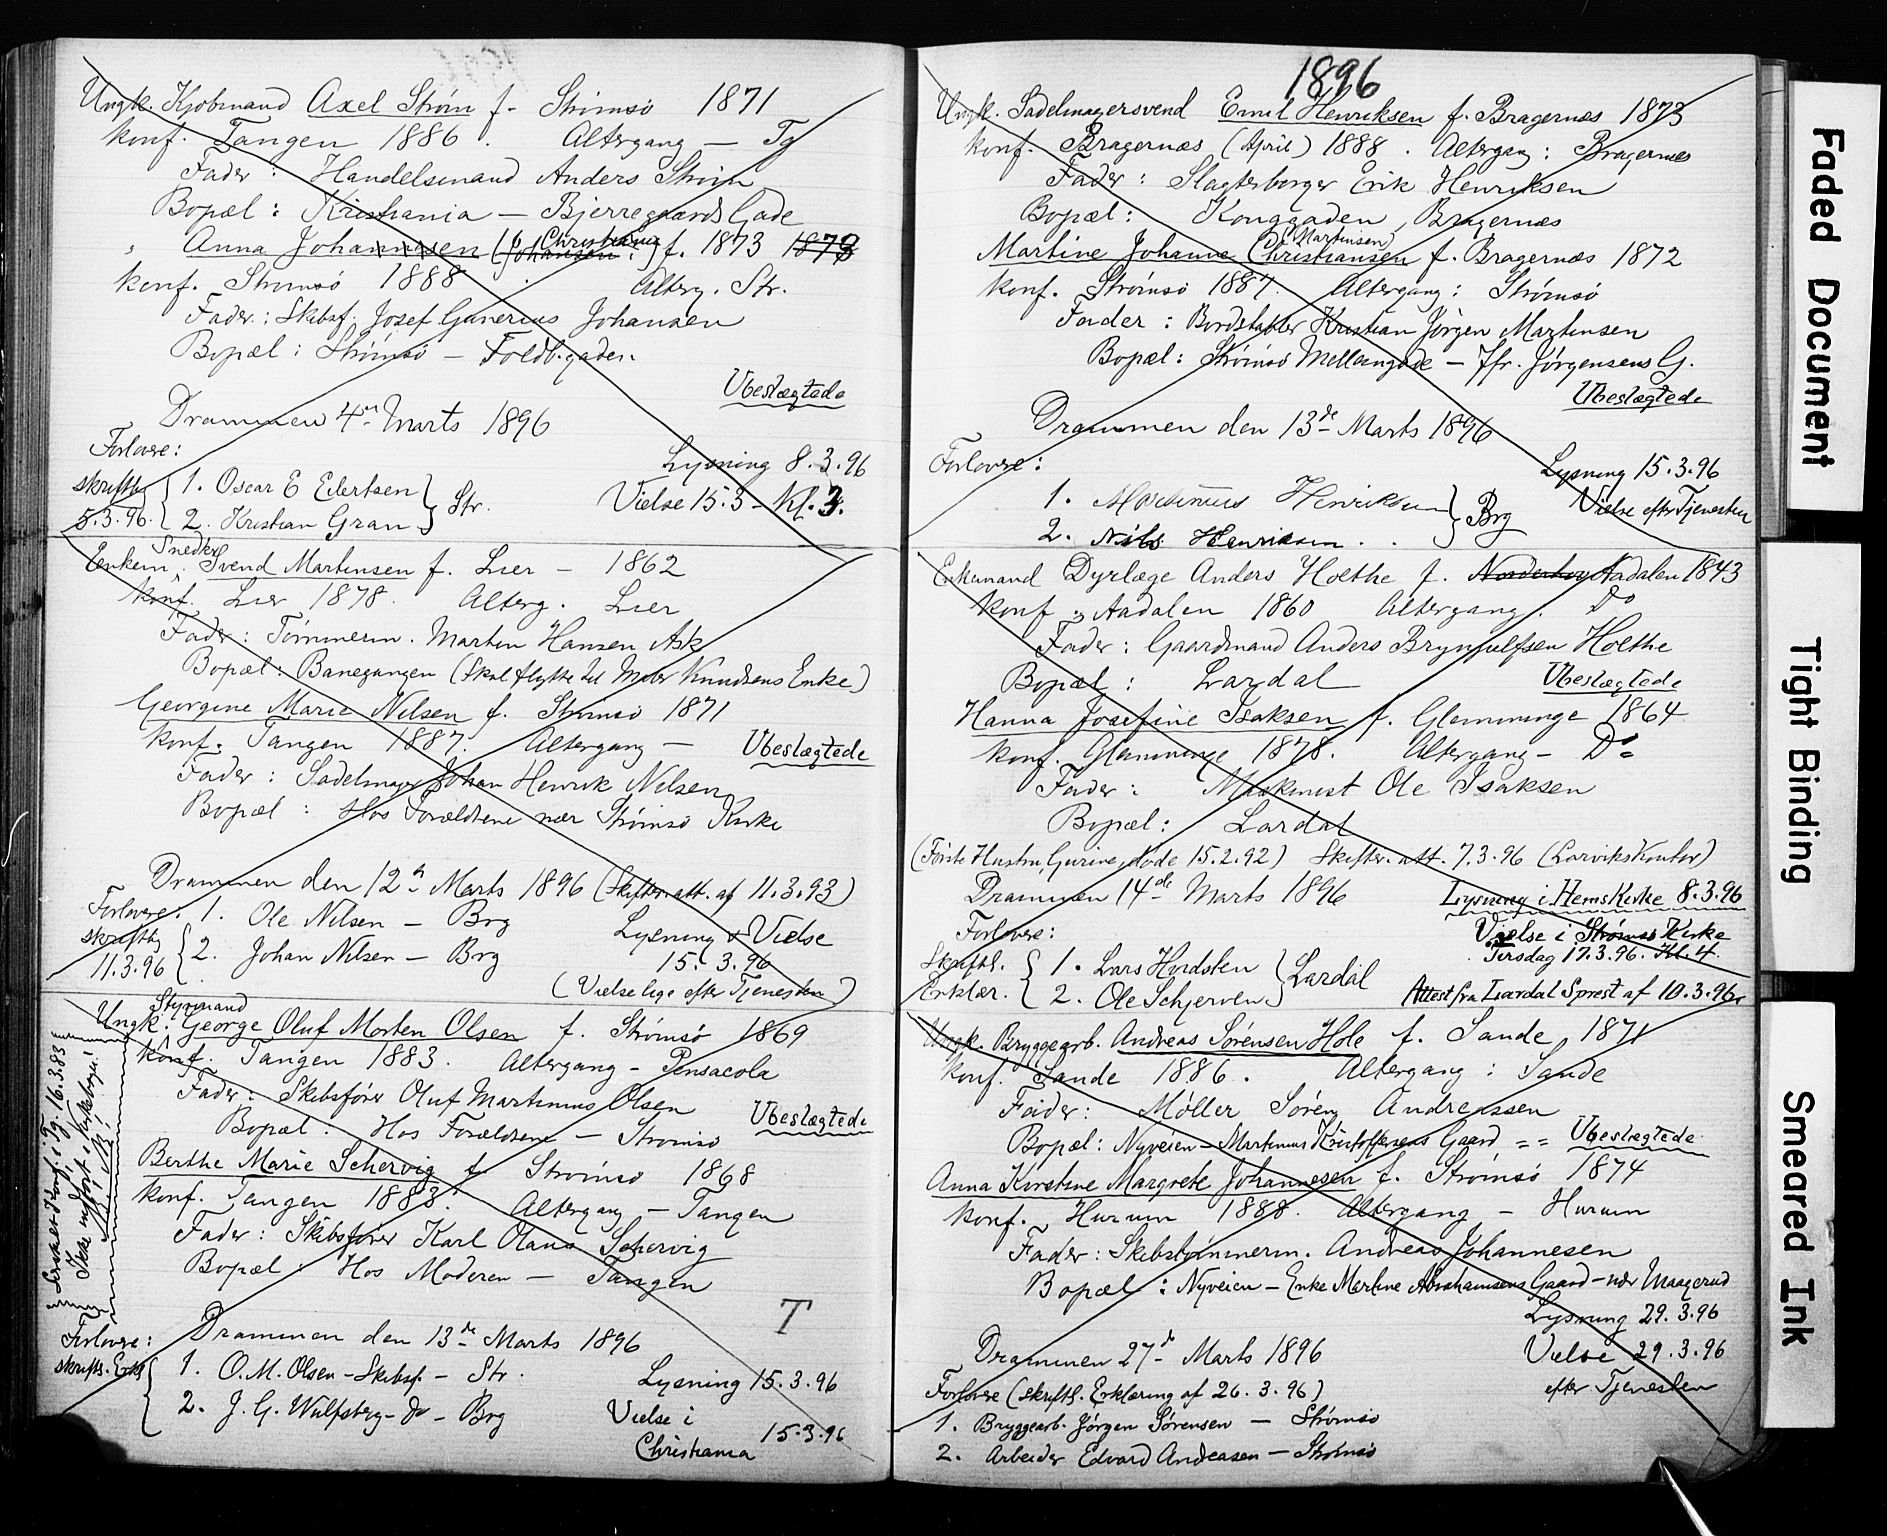 Ungk. Kjøbmand Axel Strøm f. Strømsø 1871
konf. Tangen 1886. Altergang — Tg
Fader: Handelsmand Anders Strøm
Bopæl: Kristiania — Bjerregaards Gade
" Anna Johannesen (f. Johansen Christiania) f. 1873 1873
konf. Strømsø 1888. Alterg. Str.
Fader: Skibsf. Josef Gunerius Johansen
Bopæl: Strømsø — Toldb.gaden
Ubeslægtede
Drammen 4de Marts 1896
Forlovere:
Lysning 8.3.96
skriftlig 5.3.96. 1. Oscar E Eilertsen
2. Kristian Gran } Str.
Vielse 15.3 — Kl. 3.
Enkem. Snedker Svend Martinsen f. Lier — 1862
konf. Lier 1878. Alterg. Lier
Fader: Tømmerm. Martin Hansen Ask
Bopæl: Banegangen (skal flytte til Knudsens Enke)
Georgine Marie Nilsen f. Strømsø 1871
konf. Tangen 1887. Altergang — Ubeslægtede
Fader: Sadelmager Johan Henrik Nilsen
Bopæl: Hos Forældrene nær Strømsø Kirke
Drammen den 12te Marts 1896 (Skifter.att. af 11.3.93)
Forlovere: 1. Ole Nilsen — Brg
skriftlig 11.3.96 2. Johan Nilsen — Brg
Lysning & Vielse
15.3.96
(Vielse lige efter Tjenesten)
Ungk. Styrmand George Oluf Morten Olsen f. Strømsø 1869
konf. Tangen 1883. Altergang — Pensacola
Fader: Skibsfører Oluf Martinius Olsen
Bopæl: Hos Forældrene — Strømsø
Ubeslægtede
Berthe Marie Schervig f. Strømsø 1868
konf. Tangen 1883. Altergang — Tangen
Fader: Skibsfører Karl Olaus Schervig
Bopæl: Hos Moderen — Tangen
konf. i Tg. 16.3.83
Ikke indført i Kirkebogen!
T
Drammen den 13de Marts 1896
Forlovere:
skriftl. Erkl. 1. O. M. Olsen — Skibsf. — Str.
2. J. G. Wulfsberg — Do — Brg
Lysning 15.3.96
Vielse i Christiania 15.3.96
1896
Ungk. Sadelmagersvend Emil Henriksen f. Bragernæs 1873
konf. Bragernæs (April) 1888. Altergang: Bragernæs
Fader: Slagterborger Erik Henriksen
Bopæl: Konggaden, Bragernæs
Martine Johanne Christiansen (Martinsen) f. Bragernæs 1872
konf. Strømsø 1887. Altergang: Strømsø
Fader: Bordstabler Kristian Jørgen Martinsen
Bopæl: Strømsø Mellemgade — Jfr. Jørgensens G.
Ubeslægtede
Drammen den 13de Marts 1896
Forlovere:
Lysning 15.3.96
1. Martinius Henriksen
2. Nils Henriksen } Brg
Vielse efter Tjenesten
Enkemand Dyrlæge Anders Holthe f. Norderhov Aadalen 1843
konf. Aadalen 1860 Altergang. Do
Fader: Gaardmand Anders Brynjulfsen Holthe
Bopæl: Lardal
Ubeslægtede
Hanna Josefine Isaksen f. Glemminge 1864
konf. Glemminge 1878. Altergang — Do
Fader: Maskinist Ole Isaksen
Bopæl: Lardal
(Første Hustru, Gurine, døde 15.2.92) Skifter. att. 7.3.96 (Larviks Kontor)
Drammen 14de Marts 1896
Lysning i Hems Kirke 8.3.96
Forlovere:
Vielse i Strømsø Kirke
Tirsdag 17.3.96. Kl. 4.
Skriftl. Erklær. 1. Lars Hordsten
2. Ole Schjerven } Lardal
Attest fra Lardal Sprest af 10.3.96.
Ungk. Bryggearb. Andreas Sørensen Hole f. Sande, 1871
konf. Sande 1886. Altergang: Sande
Fader: Møller Søren Andreassen
Bopæl: Nyveien — Martinius Kristoffersens Gaard == Ubeslægtede
Anna Kirstine Margrete Johannesen f. Strømsø 1874
konf. Hurum 1888. Altergang — Hurum
Fader: Skibstømmerm. Andreas Johannesen
Bopæl: Nyveien — Enke Martine Abrahamsens Gaard — nær Maagerud
Lysning 29.3.96
Drammen 27de Marts 1896
Vielse 29.3.96
efter Tjenesten
Forlovere (skriftl. Erklæring af 26.3.96)
1. Bryggearb. Jørgen Sørensen — Strømsø
2. Arbeider Edvard Andreasen — Strømsø
Faded Document
Tight Binding
Smeared Ink